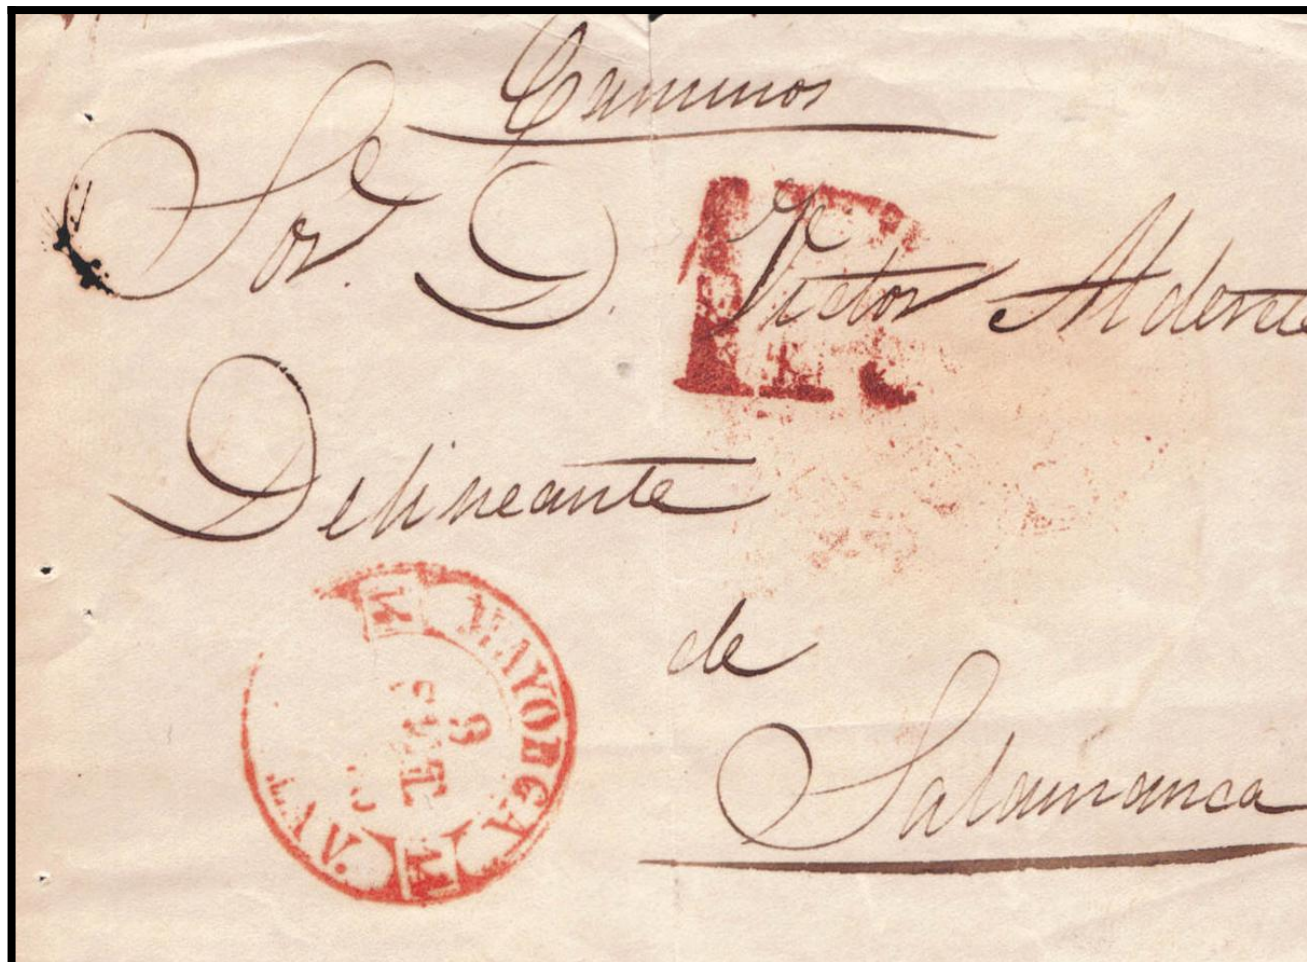 Caminos
Sor. D. Victor Alderete
Delineante
de
Salamanca
MAYORGA
9
SET
VALL.